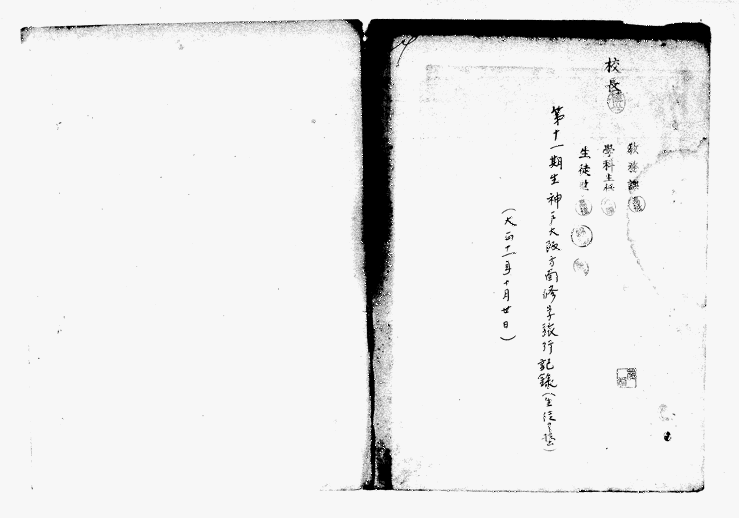 校長
教務課
學科主任
生徒
第十一期生神戸大阪方面修学旅行記錄(生徒
(大正十一年十月廿日)